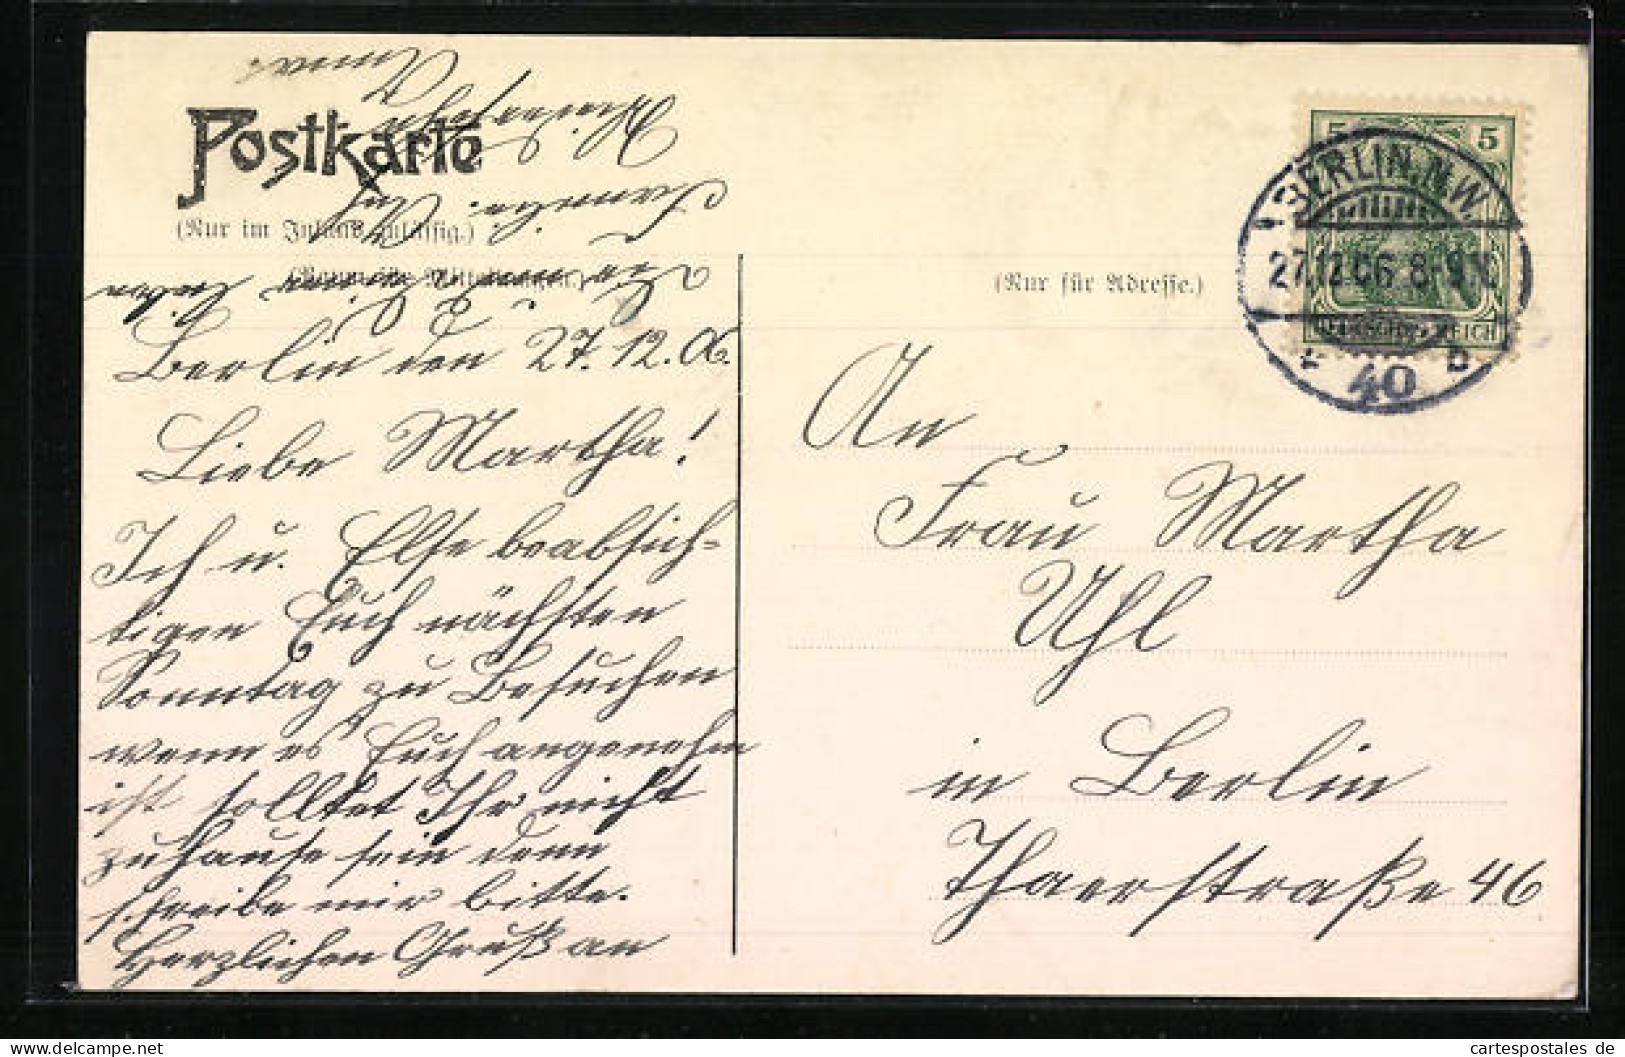 Postkarte
(Nur im Inland zulässig.)
(Raum für Mitteilungen.)
Berlin den 27.12.06.
Liebe Martha!
Ich u. Else beabsich-
tigen Euch nächsten
Sonntag zu Besuchen
wenn es Euch angenehm
ist solltet Ihr nicht
zuhause sein denn
schreibe mir bitte.
Herzlichen Gruß an
Familie. Auf
Wiedersehen
Anna
(Nur für Adresse.)
5 5
DEUTSCHES REICH
BERLIN, N.W.
27.12.06 8-9N.
40
An
Frau Martha
Uhl
in Berlin
Thaerstraße 46
cartespostales de